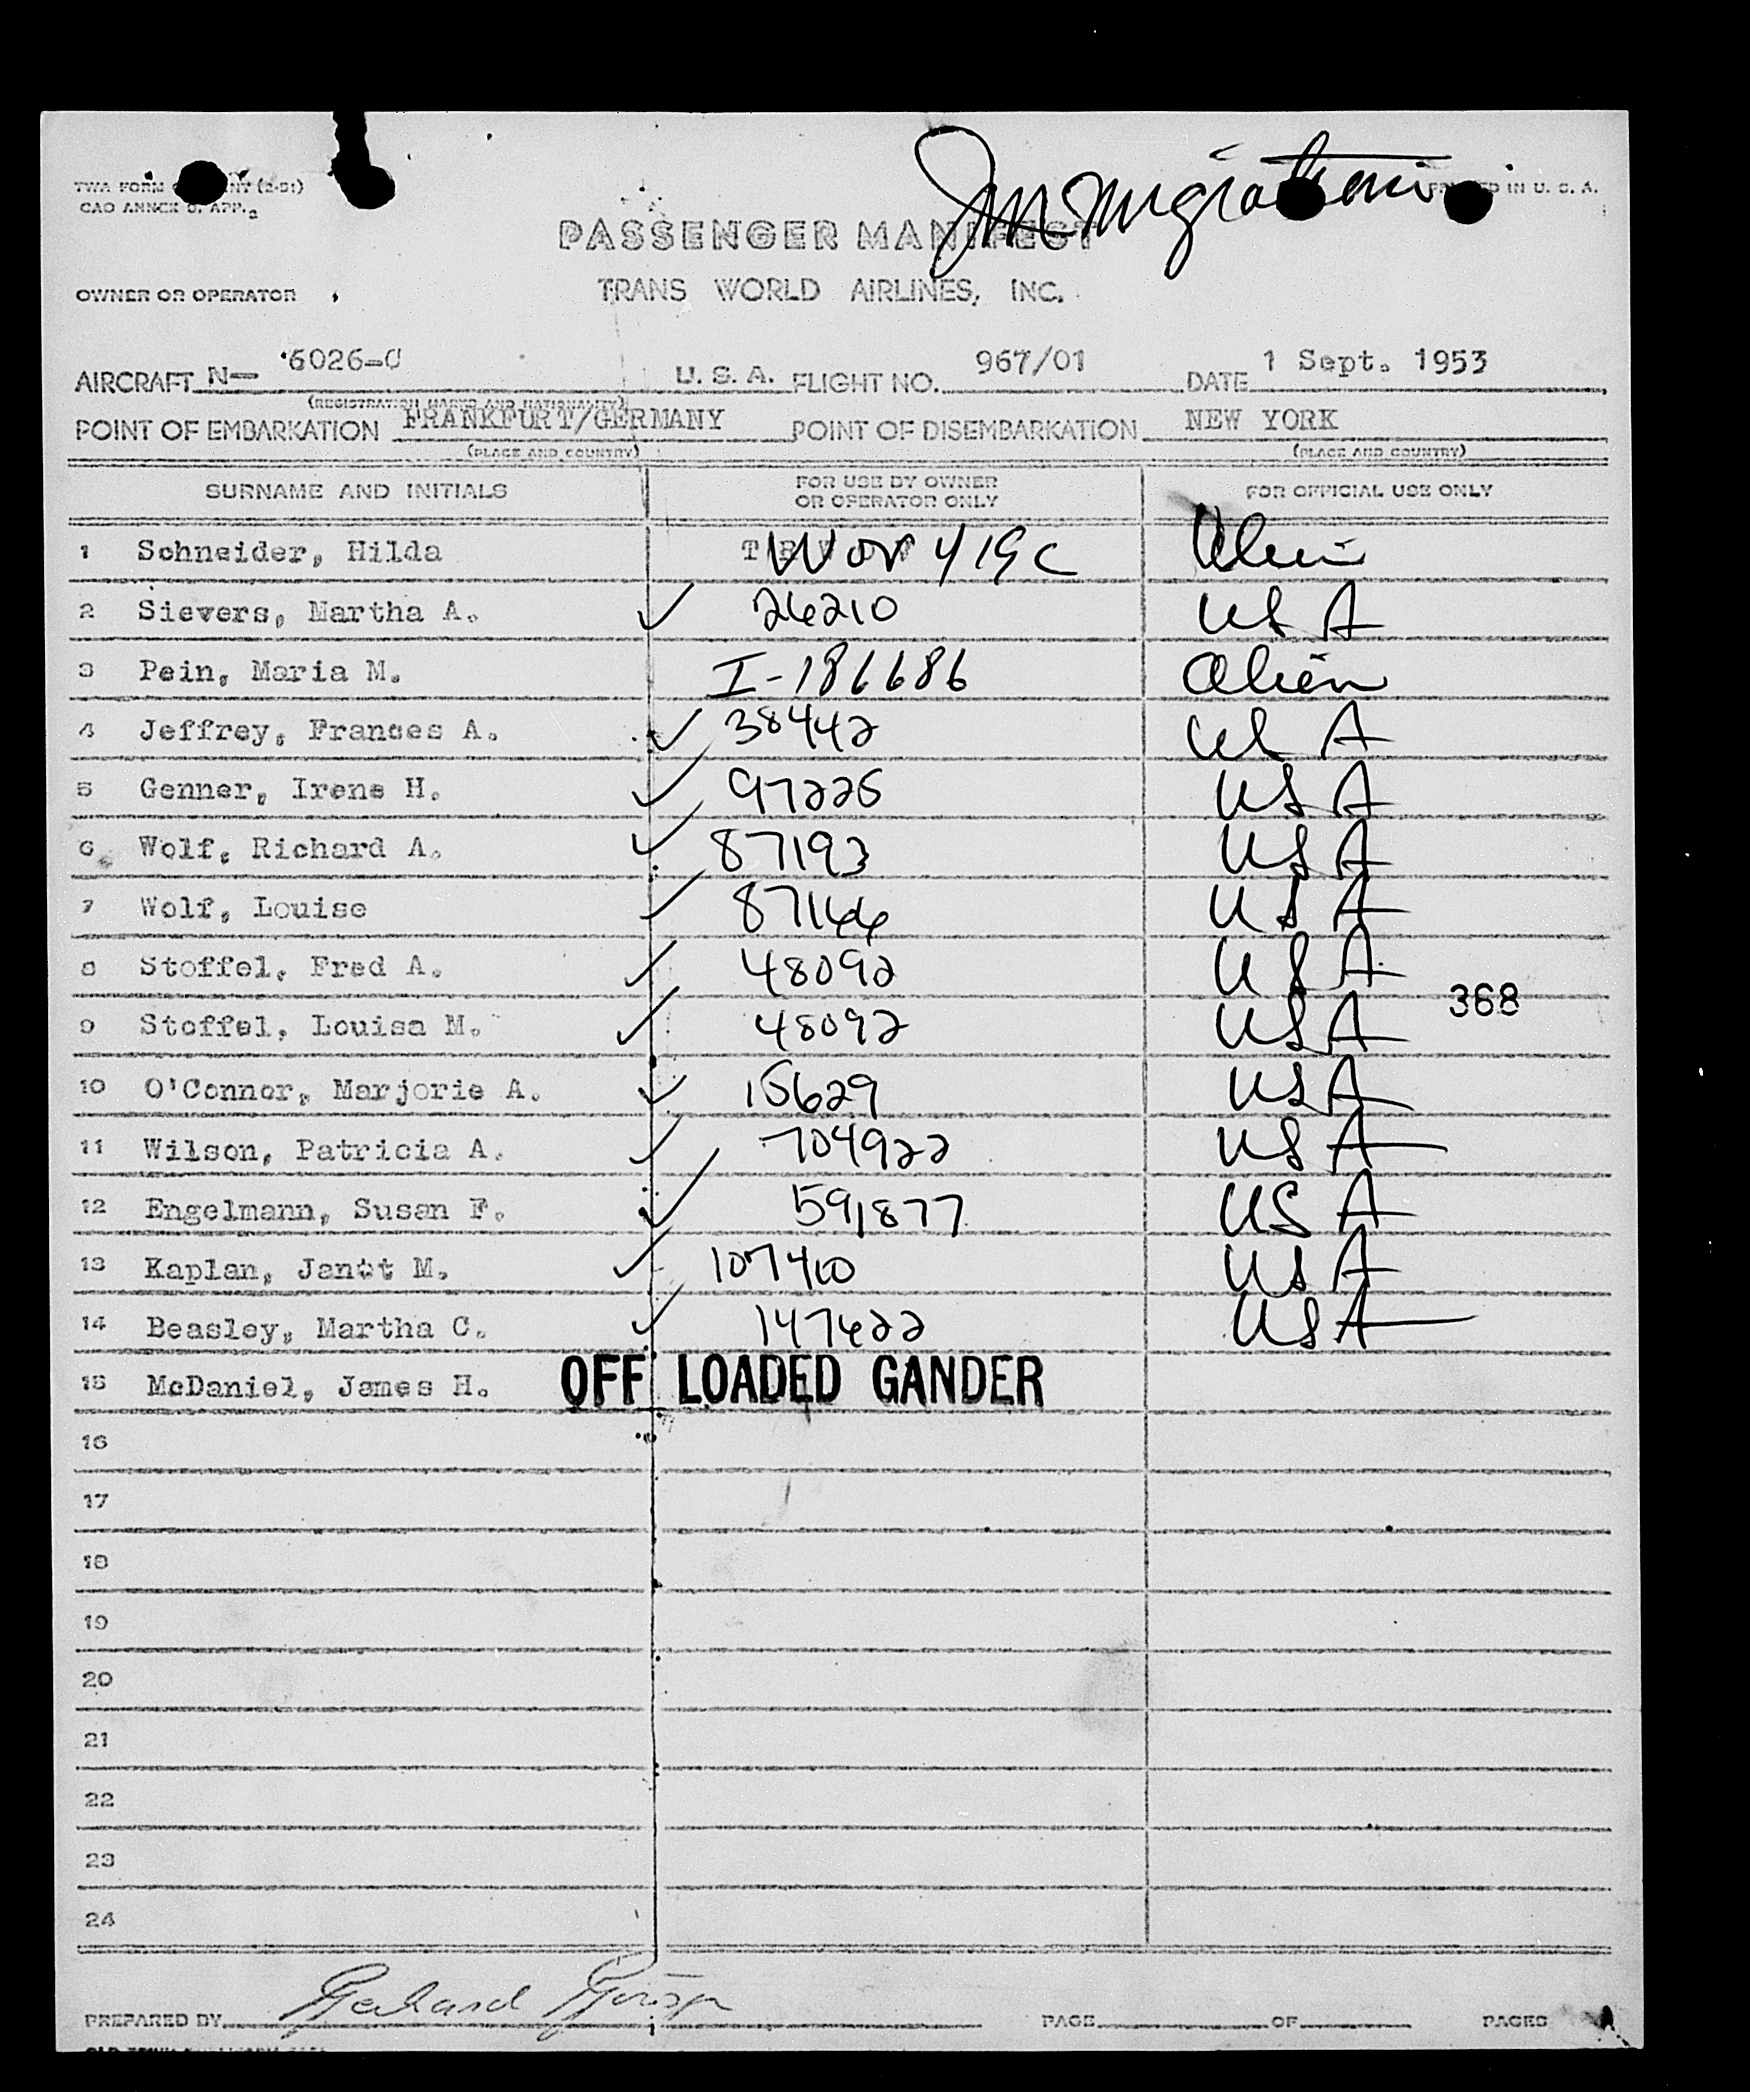 TWA FORM (2-51)
CAO ANNEX 9, APP. 2
Immigration
PRINTED IN U. S. A.
PASSENGER MANIFEST
OWNER OR OPERATOR
TRANS WORLD AIRLINES, INC.
AIRCRAFT N— 6026-C U. S. A. FLIGHT NO. 967/01 DATE 1 Sept. 1953
(REGISTRATION MARKS AND NATIONALITY)
POINT OF EMBARKATION FRANKFURT/GERMANY POINT OF DISEMBARKATION NEW YORK
(PLACE AND COUNTRY) (PLACE AND COUNTRY)
SURNAME AND INITIALS FOR USE BY OWNER OR OPERATOR ONLY FOR OFFICIAL USE ONLY
1 Schneider, Hilda Alien
2 Sievers, Martha A. ✓ 26210 US A
3 Pein, Maria M. I-186686 Alien
4 Jeffrey, Frances A. ✓ 38442 US A
5 Genner, Irene H. ✓ 97225 US A
6 Wolf, Richard A. ✓ 87193 US A
7 Wolf, Louise ✓ 87144 US A
8 Stoffel, Fred A. ✓ 48092 US A
368
9 Stoffel, Louisa M. ✓ 48092 USA
10 O'Connor, Marjorie A. ✓ 15629 USA
11 Wilson, Patricia A. ✓ 704922 US A
12 Engelmann, Susan F. ✓ 591877 US A
13 Kaplan, Janet M. ✓ 107410 US A
14 Beasley, Martha C. ✓ 147422 USA
15 McDaniel, James H. OFF LOADED GANDER
16
17
18
19
20
21
22
23
24
PREPARED BY Gerhard PAGE OF PAGES